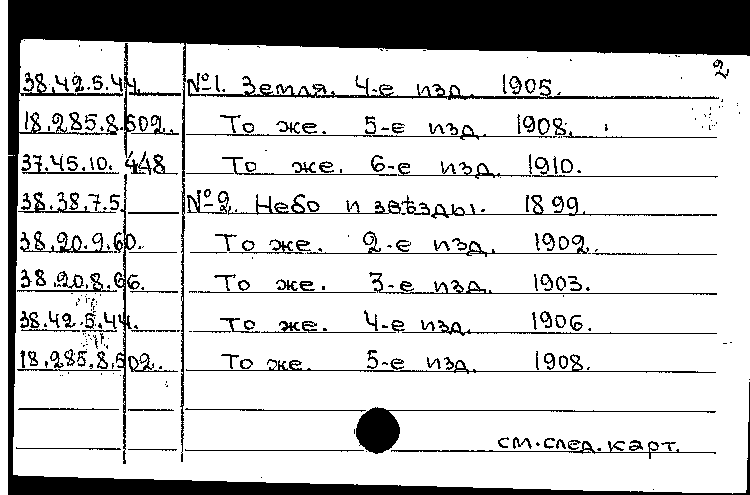 2
38.42.5.44. №1. Земля. 4-е изд. 1905.
18.285.8.502. То же. 5-е изд. 1908.
37.45.10.448 То же. 6-е изд. 1910.
38.38.7.5. №2. Небо и звѣзды. 1899.
38.20.9.60. То же. 2-е изд. 1902.
38.20.8.66. То же. 3-е изд. 1903.
38.42.5.44. То же. 4-е изд. 1906.
18.285.8.502. То же. 5-е изд. 1908.
см.след.карт.